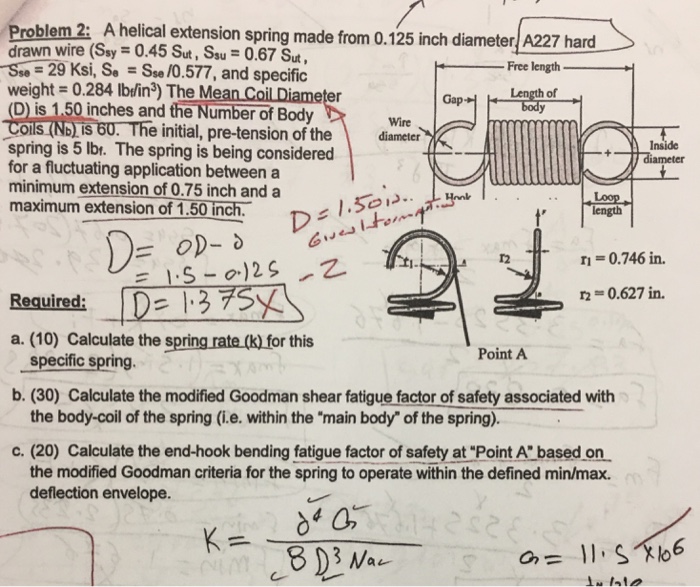 Problem 2: A helical extension spring made from 0.125 inch diameter, A227 hard
drawn wire (Ssy = 0.45 Sut, Ssu = 0.67 Sut,
Sse = 29 Ksi, Se = Sse /0.577, and specific
weight = 0.284 lbf/in³) The Mean Coil Diameter
(D) is 1.50 inches and the Number of Body
Coils (Nb) is 60. The initial, pre-tension of the
spring is 5 lbf. The spring is being considered
for a fluctuating application between a
minimum extension of 0.75 inch and a
maximum extension of 1.50 inch.
Free length
Gap
Length of
body
Wire
diameter
Inside
diameter
Hook
Loop
length
D = 1.50 in.
Given Information
D = OD - d
= 1.5 - 0.125
- 2
D = 1.375 X
r1
r2
r1 = 0.746 in.
r2 = 0.627 in.
Point A
Required:
a. (10) Calculate the spring rate (k) for this
specific spring.
b. (30) Calculate the modified Goodman shear fatigue factor of safety associated with
the body-coil of the spring (i.e. within the "main body" of the spring).
c. (20) Calculate the end-hook bending fatigue factor of safety at "Point A" based on
the modified Goodman criteria for the spring to operate within the defined min/max.
deflection envelope.
K = d⁴ G
8 D³ Nac
G = 11.5 X106